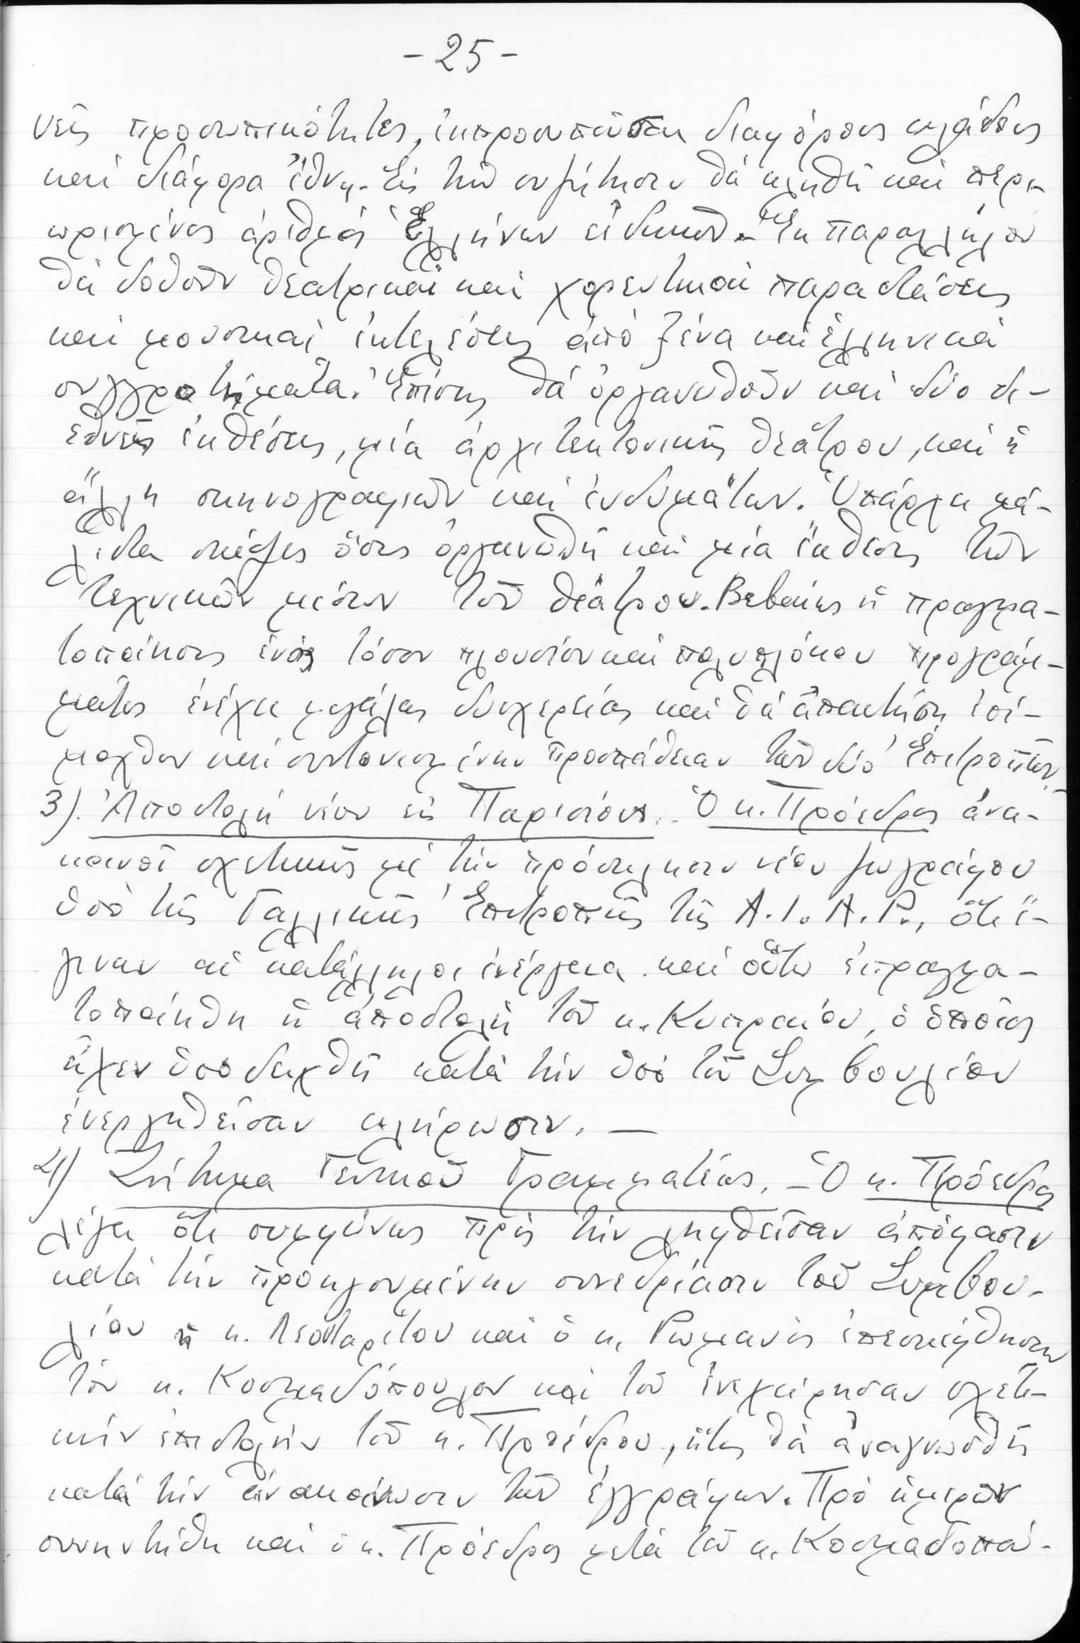 -25-
νεῖς προσωπικότητες, ἐκπροσωποῦσαι διαφόρους κλάδους
καί διάφορα ἔθνη. Εἰς τήν συζήτησιν θά κληθῇ καί περι-
ωρισμένος ἀριθμός Ἑλλήνων εἰδικῶν. Ἐκ παραλλήλου
θά δοθοῦν θεατρικαί καί χορευτικαί παραστάσεις
καί μουσικαί ἐκτελέσεις ἀπό ξένα καί ἑλληνικά
συγκροτήματα. Ἐπίσης θά ὀργανωθοῦν καί δύο δι-
εθνεῖς ἐκθέσεις, μία ἀρχιτεκτονικῆς θεάτρου, καί ἡ
ἄλλη σκηνογραφιῶν καί ἐνδυμάτων. Ὑπάρχει μά-
λιστα σκέψις ὅπως ὀργανωθῇ καί μία ἔκθεσις τῶν
τεχνικῶν μέσων τοῦ θεάτρου. Βεβαίως ἡ πραγμα-
τοποίησις ἑνός τόσον πλουσίου καί πολυπλόκου προγράμ-
ματος ἐνέχει μεγάλας δυσχερείας καί θά ἀπαιτήσῃ ἐπί-
μοχθον καί συντονισμένην προσπάθειαν τῶν δύο Ἐπιτροπῶν.-
3). Ἀποστολή νέου εἰς Παρισίους.- Ὁ κ. Πρόεδρος ἀνα-
κοινοῖ σχετικῶς μέ τήν πρόσκλησιν νέου ζωγράφου
ὑπό τῆς Γαλλικῆς Ἐπιτροπῆς τῆς A.I.A.P., ὅτι ἔ-
γιναν αἱ κατάλληλοι ἐνέργειαι καί οὕτω ἐπραγμα-
τοποιήθη ἡ ἀποστολή τοῦ κ. Κυπραίου, ὁ ὁποῖος
εἶχεν ὑποδειχθῆ κατά τήν ὑπό τοῦ Συμβουλίου
ἐνεργηθεῖσαν κλήρωσιν. —
4) Ζήτημα Γενικοῦ Γραμματέως. - Ὁ κ. Πρόεδρος
λέγει ὅτι συμφώνως πρός τήν ληφθεῖσαν ἀπόφασιν
κατά τήν προηγουμένην συνεδρίασιν τοῦ Συμβου-
λίου ἡ κ. Λεονταρίτου καί ὁ κ. Ρωμανός ἐπεσκέφθησαν
τόν κ. Κοσμαδόπουλον καί τοῦ ἐνεχείρησαν σχετι-
κήν ἐπιστολήν τοῦ κ. Προέδρου, ἥτις θά ἀναγνωσθῇ
κατά τήν ἀνακοίνωσιν τῶν ἐγγράφων. Πρό ἡμερῶν
συνηντήθη καί ὁ κ. Πρόεδρος μετά τοῦ κ. Κοσμαδοπού-